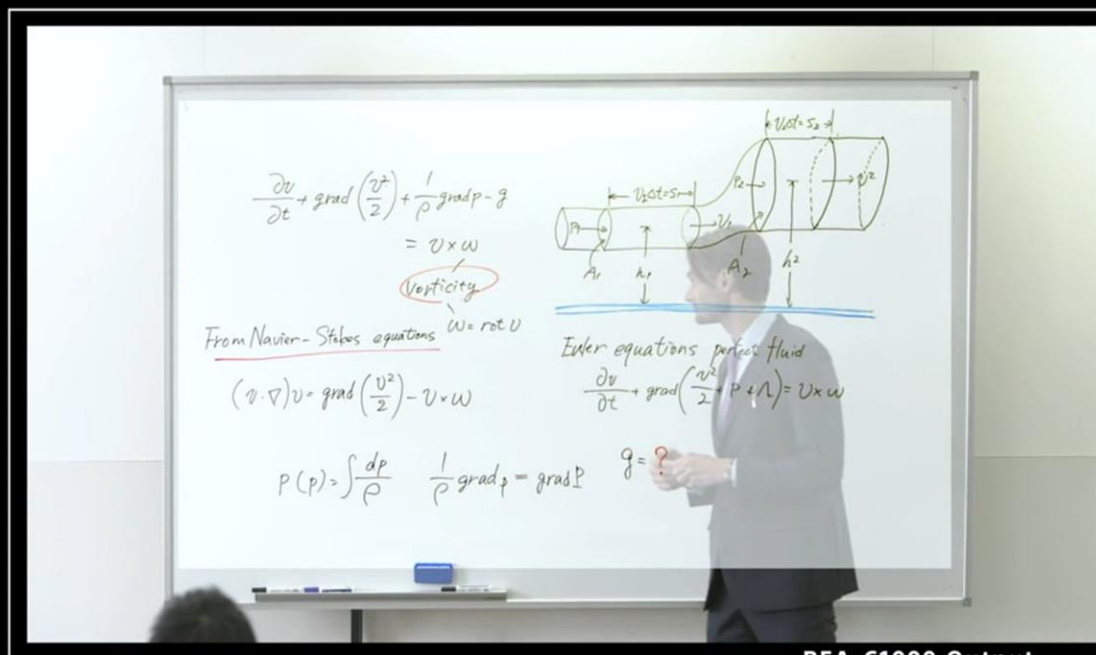 ∂v/∂t + grad (v²/2) + 1/ρ grad p - g
= v × ω
Vorticity
ω = rot v
From Navier-Stokes equations
(v·∇)v = grad (v²/2) - v × ω
P(p) = ∫ dp/ρ
1/ρ grad p = grad P
v₂Δt=s
P₁
A₁
h₁
v₁
P₂
A₂
h²
v²
Euler equations perfect fluid
∂v/∂t + grad (v²/2 + P + Λ) = v × ω
g = ?